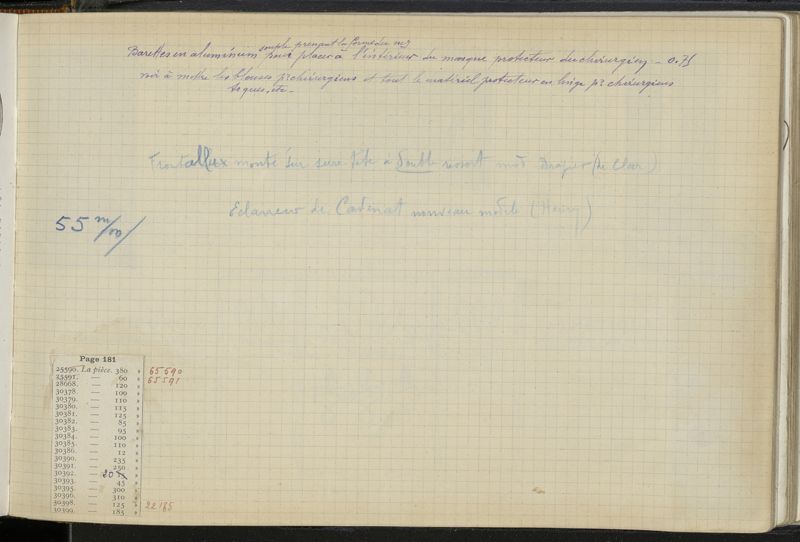 souple prenant la forme du nez
Barettes en aluminium pour placer à l'intérieur du masque protecteur du chirurgien - 0.75
voir à mettre les blouses pr chirurgiens et tout le matériel protecteur en linge pr chirurgiens
toques, etc -
Frontallux monté sur serre tête à double ressort mod Drapier (de Clar)
Eclaireur de Cadenat nouveau modèle (Henry)
55 m/m/
Page 181
25590. La pièce. 380 » 65590
25591. — 60 » 65591
28668. — 120 »
30378. — 100 »
30379. — 110 »
30380. — 115 »
30381. — 125 »
30382. — 85 »
30383. — 95 »
30384. — 100 »
30385. — 110 »
30386. — 12 »
30390. — 235 »
30391. — 250 »
30392. — 20
30393. — 45 »
30395. — 300 »
30396. — 310 »
30398. — 125 » 22185
30399. — 185 »